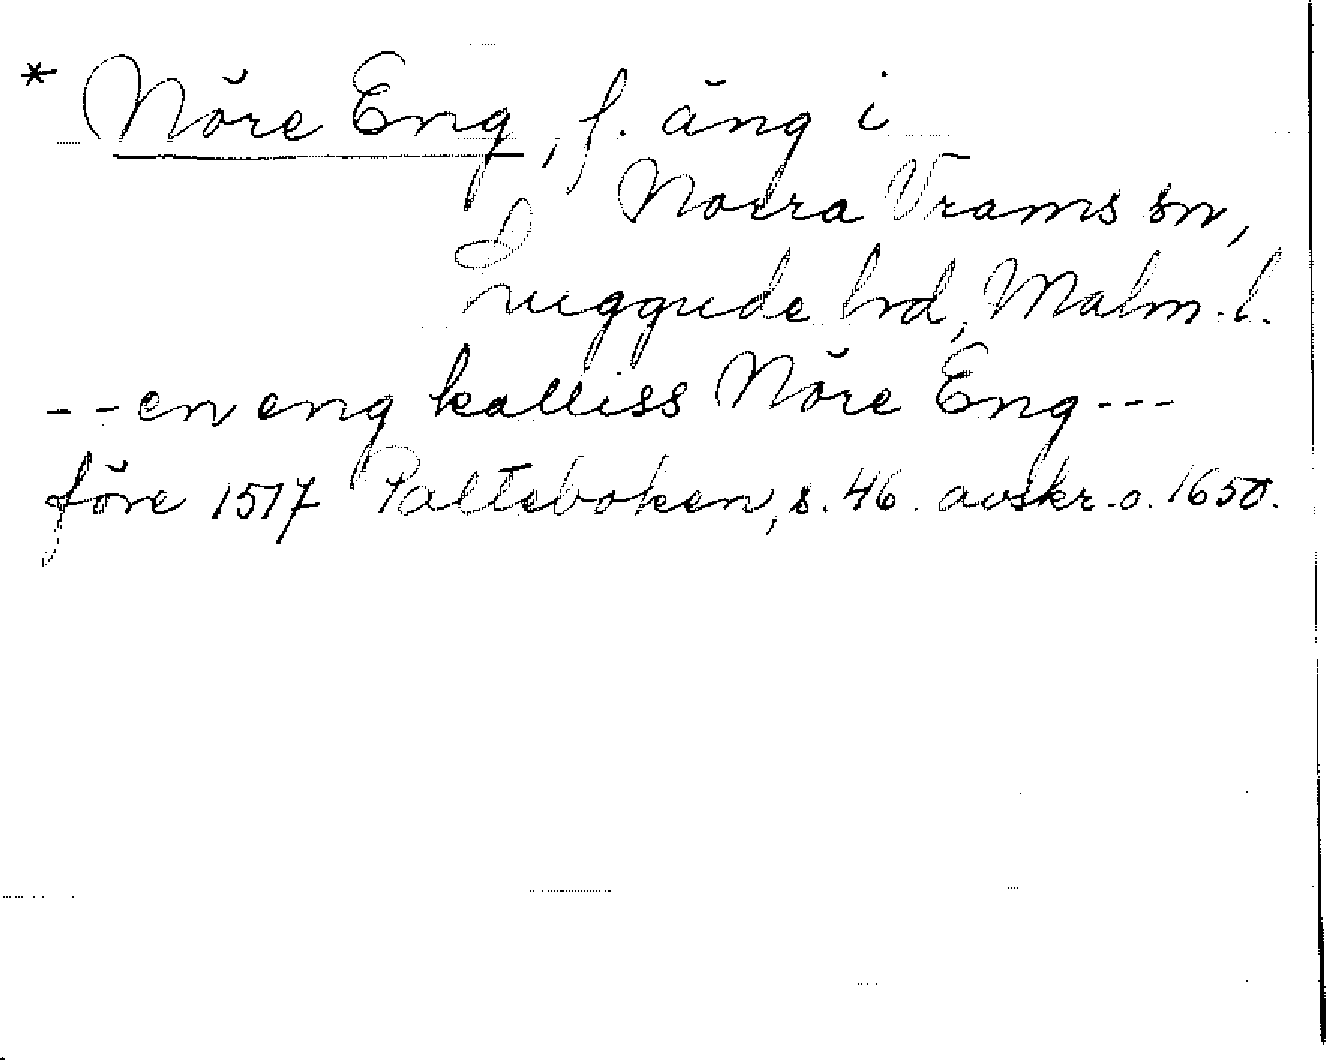 * Nöre Eng, f. äng i
Norra Vrams sn,
Luggude hrd, Malm. l.
- - en eng kalliss Nöre Eng - - -
före 1517 Palteboken, s. 46. avskr. o. 1650.